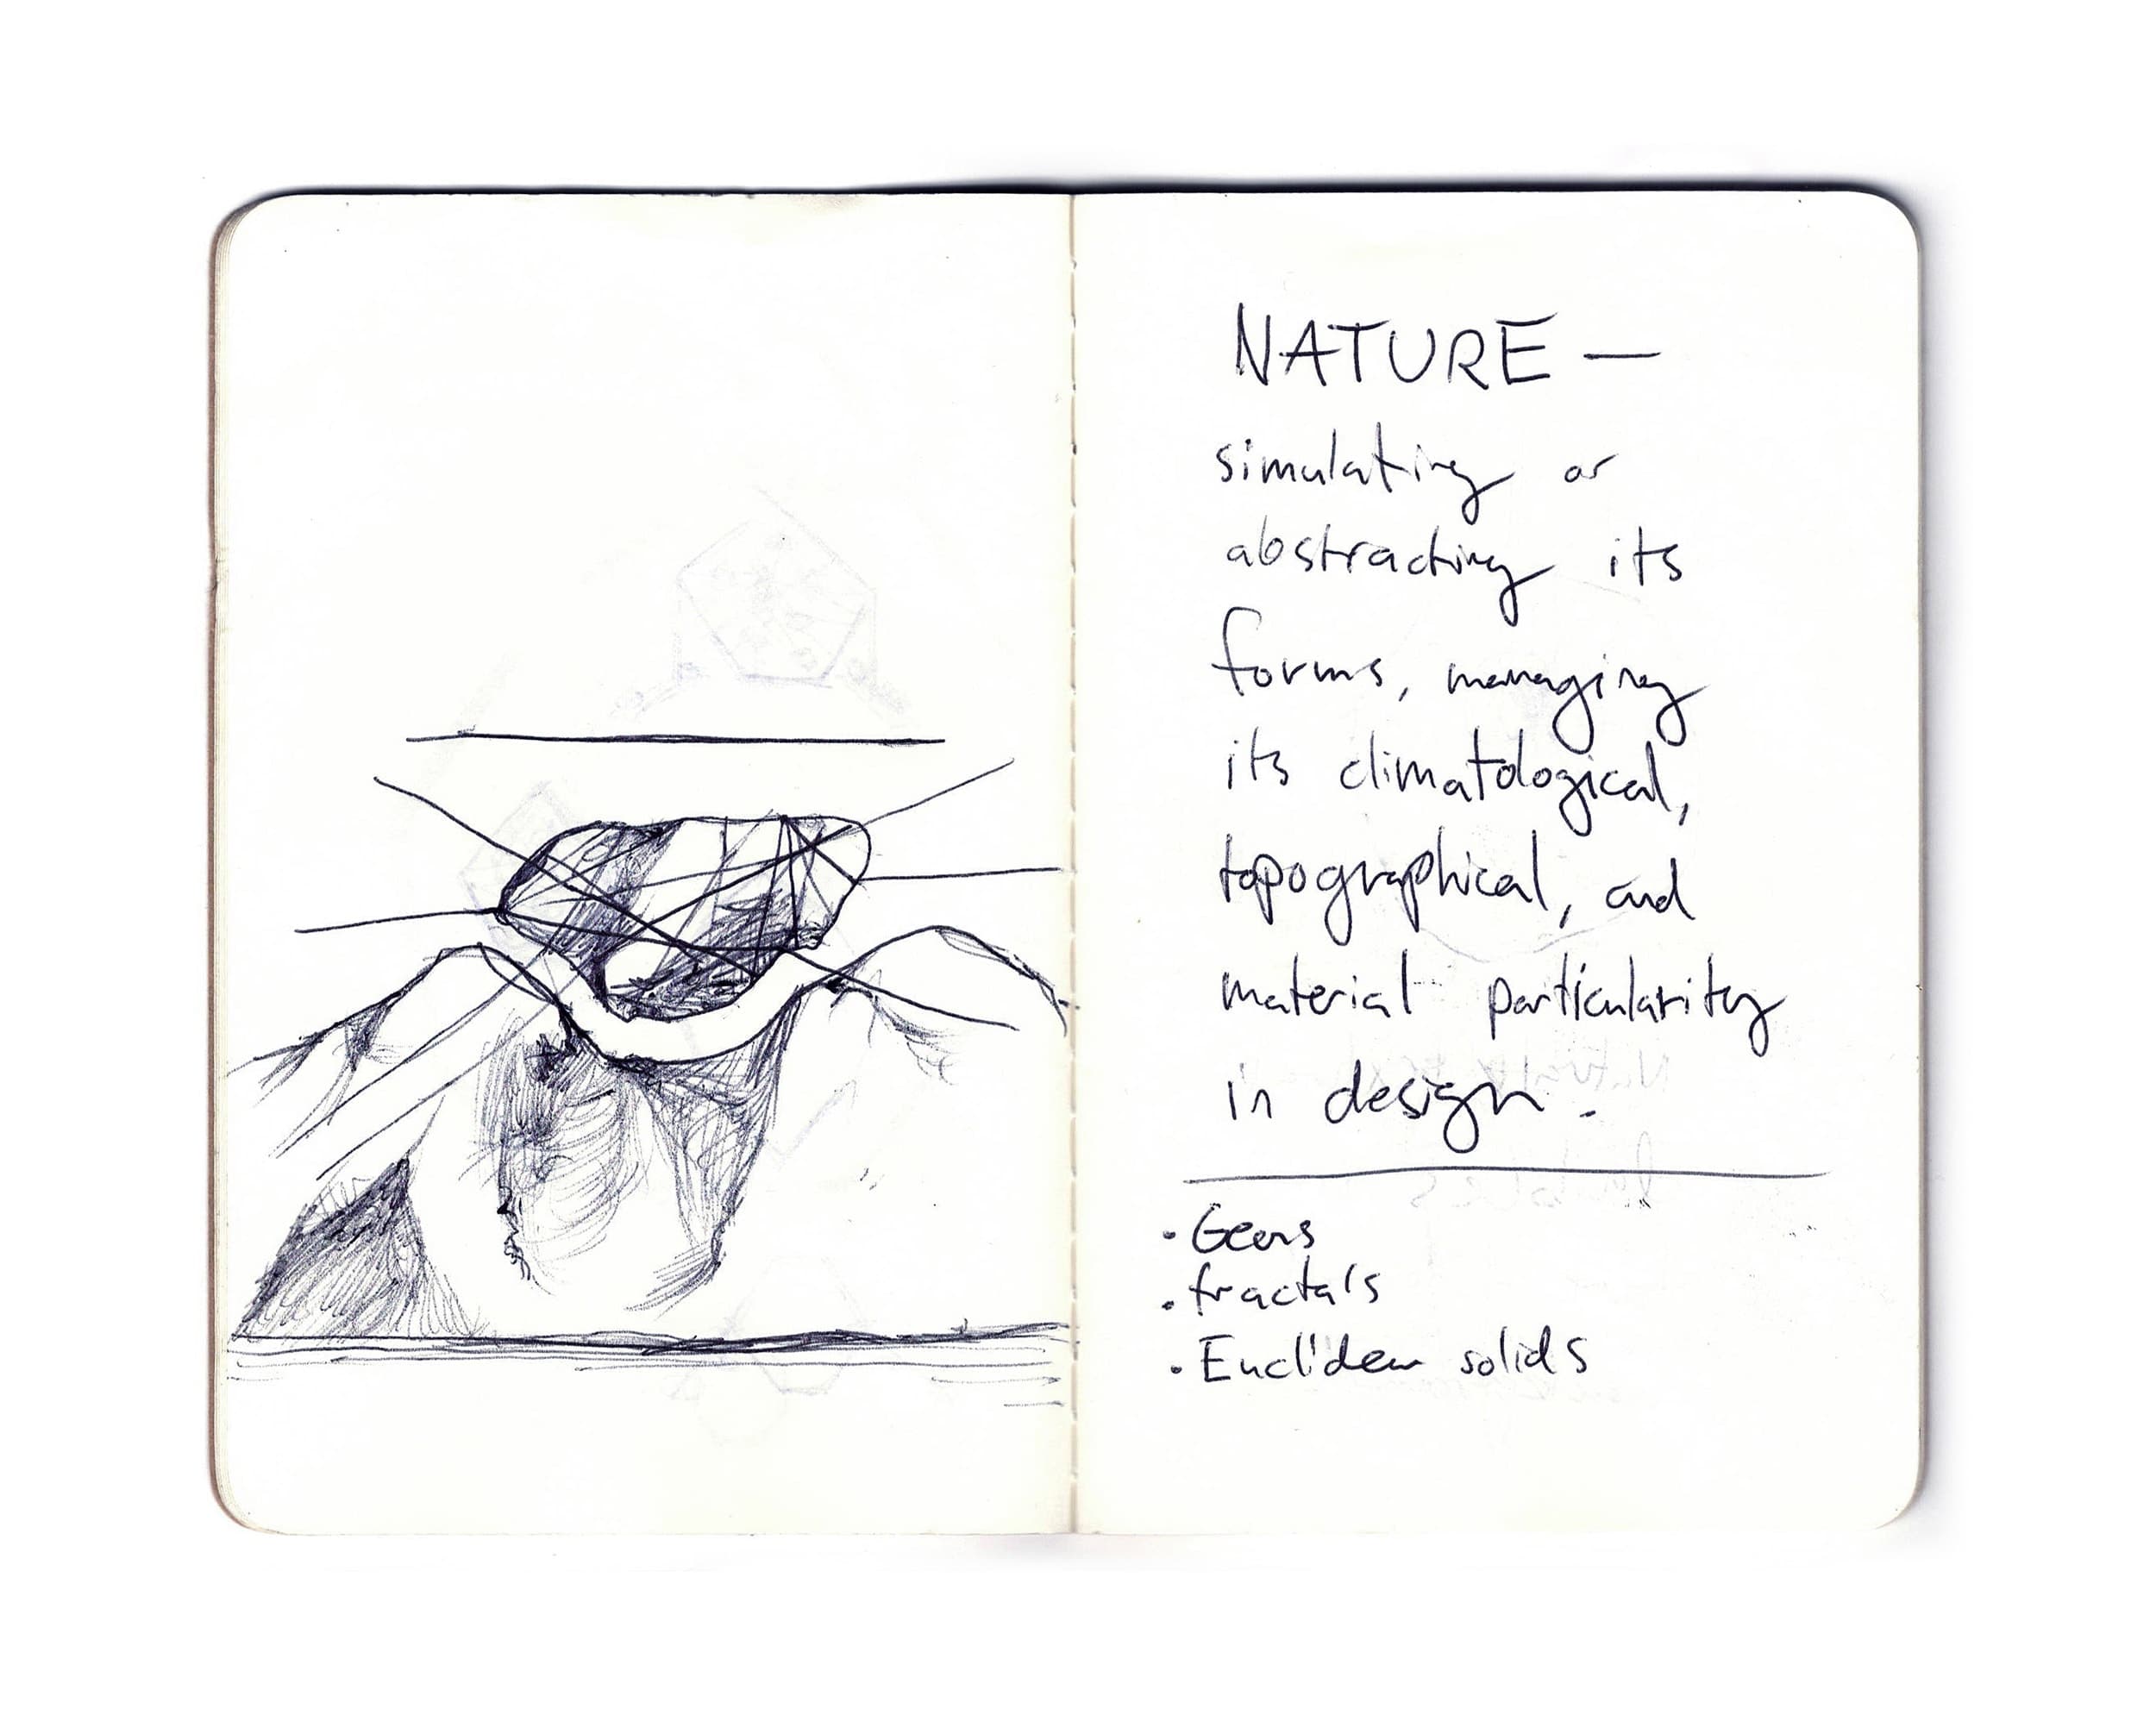 NATURE —
simulating or
abstracting its
forms, managing
its climatological,
topographical, and
material particularity
in design.
• Gears
• fractals
• Euclidean solids